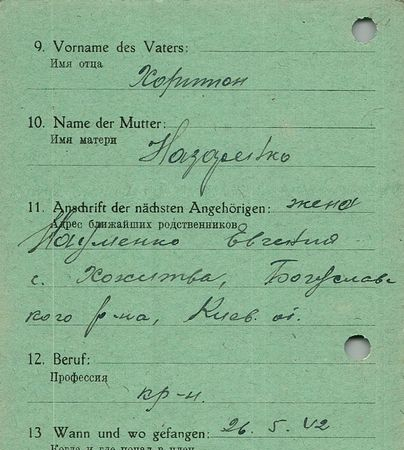 9. Vorname des Vaters:
Имя отца
Харитон
10. Name der Mutter:
Имя матери
Назаренко
11. Anschrift der nächsten Angehörigen: жена
Адрес ближайших родственников
Науменко Евгения
с. Хохитва, Богуслав-
кого р-на, Киев. об.
12. Beruf:
Профессия
кр-н.
13 Wann und wo gefangen: 26. 5. 42
Когда и где попал в плен